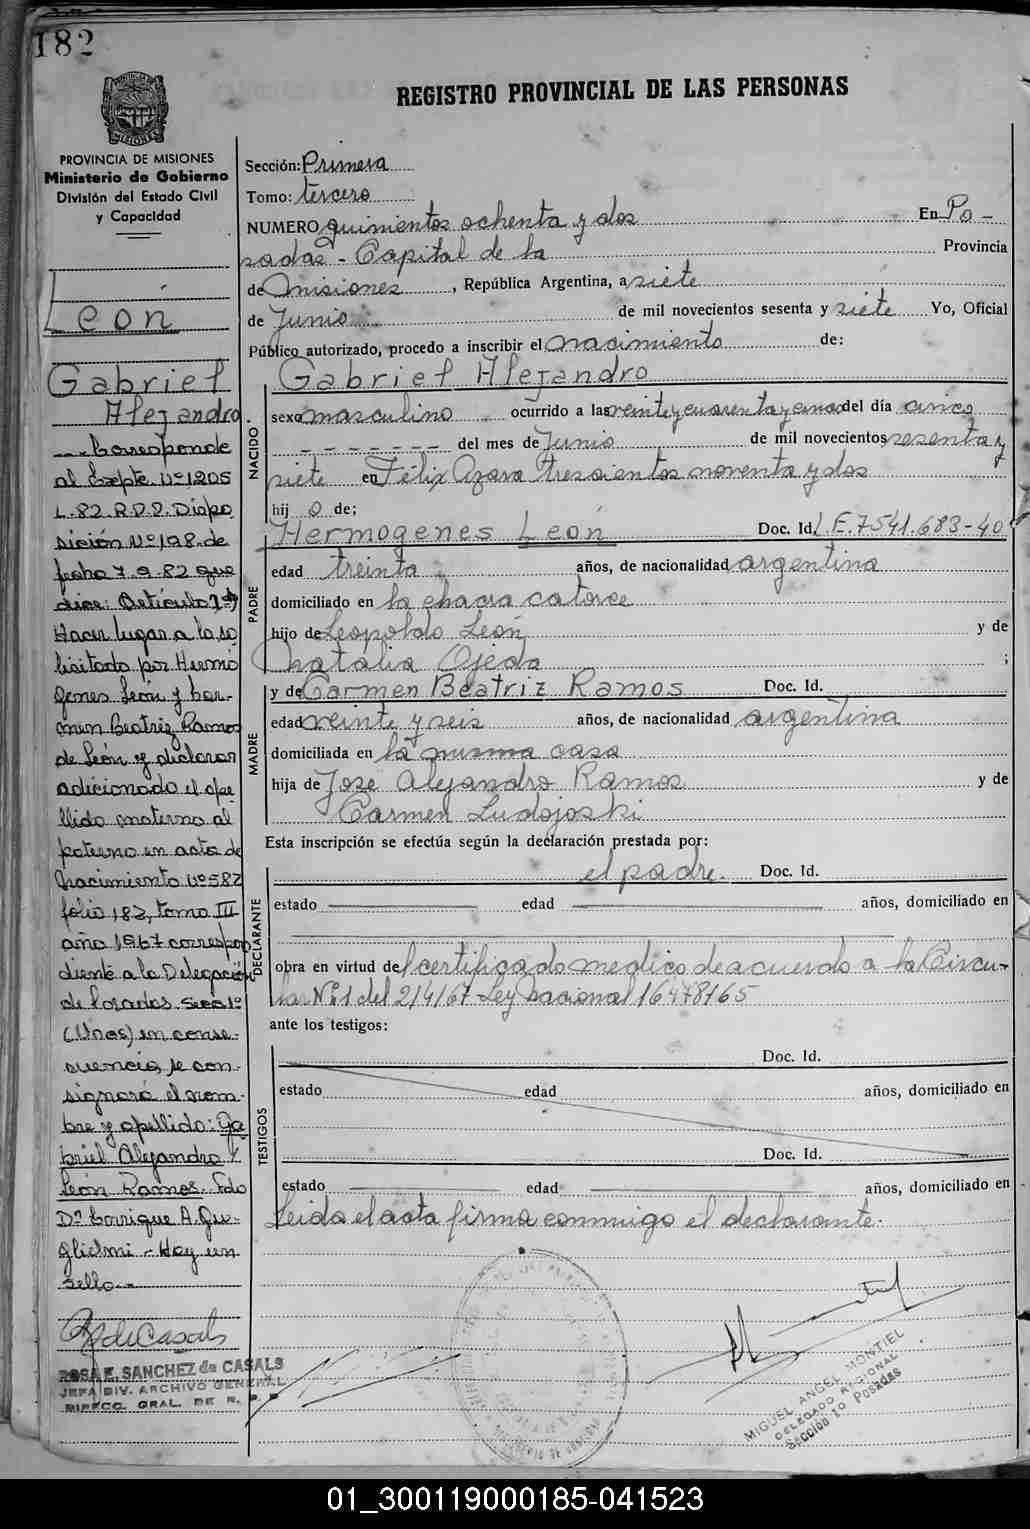 182
PROVINCIA DE MISIONES
Ministerio de Gobierno
División del Estado Civil
y Capacidad
León
Gabriel
Alejandro
Corresponde
al Expte Nº 1205
L. 82 R.D.P. Dispo
sición Nº 198 de
fecha 7.9.82 que
dice: Artículo 1º)
Hacer lugar a lo so
licitado por Hermó
genes León y Car-
men Beatriz Ramos
de León y declarar
adicionado el ape
llido materno al
paterno en acta de
nacimiento Nº 582
folio 182, tomo III
año 1967 correspon
diente a la Delegación
de Posadas Secc 1º
(Unos) en conse-
cuencia, se con-
signará el nom-
bre y apellido: Ga
briel Alejandro
León Ramos. Fdo
Dº Enrique A. Gu-
glielmi - Hay un
sello.-
ROSA E. SANCHEZ de CASALS
JEFA DIV. ARCHIVO GENERAL
DIRECC. GRAL. DE R. P. P.
REGISTRO PROVINCIAL DE LAS PERSONAS
Sección: Primera
Tomo: tercero
NUMERO quinientos ochenta y dos En Po-
sadas - Capital de la Provincia
de Misiones, República Argentina, a siete
de Junio de mil novecientos sesenta y siete Yo, Oficial
Público autorizado, procedo a inscribir el nacimiento de:
Gabriel Alejandro
NACIDO
sexo masculino ocurrido a las veinte y cuarenta y cinco del día cinco
- - - - - - - del mes de Junio de mil novecientos sesenta y
siete en Félix Azara trescientos noventa y dos
hij o de;
Hermogenes León Doc. Id. L.E. 7541.683-40
PADRE
edad treinta años, de nacionalidad argentina
domiciliado en la chacra catorce
hijo de Leopoldo León y de
Natalia Ojeda ;
y de Carmen Beatriz Ramos Doc. Id.
MADRE
edad veinte y seis años, de nacionalidad argentina
domiciliada en la misma casa
hija de José Alejandro Ramos y de
Carmen Ludojoski
Esta inscripción se efectúa según la declaración prestada por:
el padre. Doc. Id.
DECLARANTE
estado edad años, domiciliado en
obra en virtud del certificado medico de acuerdo a la Circu-
lar Nº 1 del 2/4/67 Ley nacional 16478/65
ante los testigos:
TESTIGOS
Doc. Id.
estado edad años, domiciliado en
Doc. Id.
estado edad años, domiciliado en
Leida el acta firma conmigo el declarante.
MIGUEL ANGEL MONTIEL
DELEGADO REGIONAL
Sección 1o Posadas
01_300119000185-041523